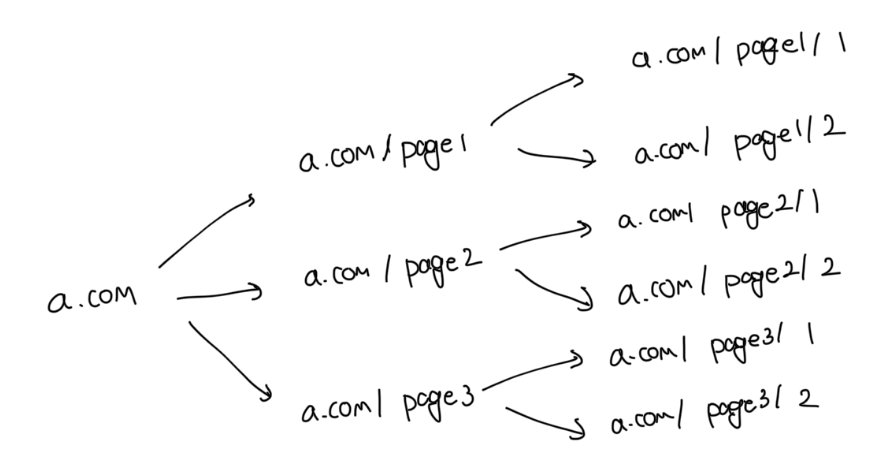 a.com
a.com/page1
a.com/page2
a.com/page3
a.com/page1/1
a.com/page1/2
a.com/page2/1
a.com/page2/2
a.com/page3/1
a.com/page3/2